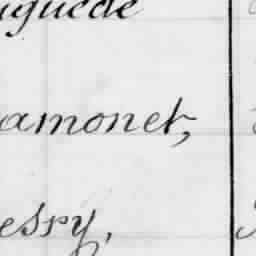 iguède
amonet,
espy,